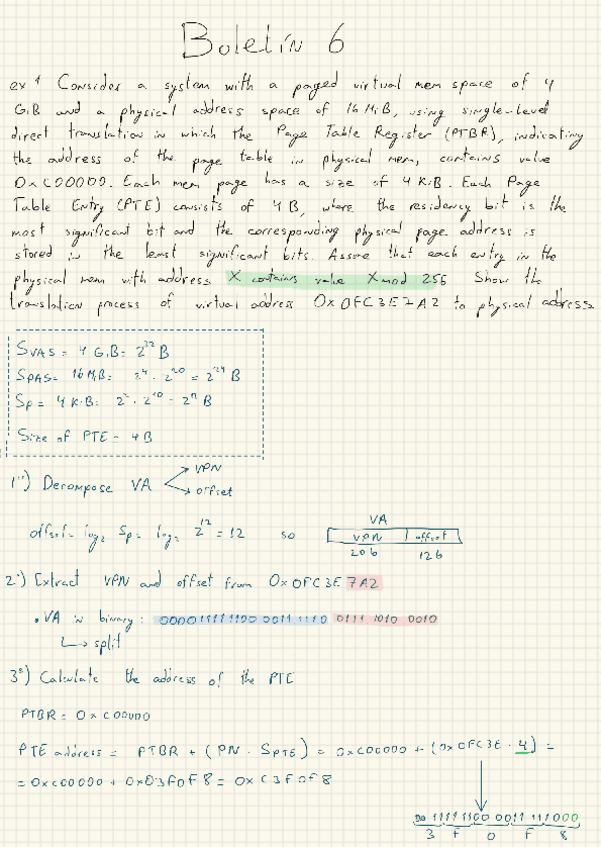 Boletín 6
ex 1 Consider a system with a paged virtual mem space of 4
GiB and a physical address space of 16 MiB, using single-level
direct translation in which the Page Table Register (PTBR), indicating
the address of the page table in physical mem, contains value
0xC00000. Each mem page has a size of 4 KiB. Each Page
Table Entry (PTE) consists of 4 B, where the residency bit is the
most significant bit and the corresponding physical page address is
stored in the least significant bits. Assume that each entry in the
physical mem with address X contains value X mod 256 Show the
translation process of virtual address 0x0FC3E7A2 to physical address.
SVAS = 4 GiB = 2^32 B
SPAS = 16 MiB = 2^4 · 2^20 = 2^24 B
Sp = 4 KiB = 2^2 · 2^10 = 2^12 B
Size of PTE = 4 B
1º) Decompose VA
VPN
offset
offset = log2 Sp = log2 2^12 = 12 so
VA
VPN offset
20b 12b
2º) Extract VPN and offset from 0x0FC3E 7A2
• VA in binary: 0000 1111 1100 0011 1110 0111 1010 0010
split
3º) Calculate the address of the PTE
PTBR = 0xC00000
PTE address = PTBR + (PN · SPTE) = 0xC00000 + (0x0FC3E · 4) =
= 0xC00000 + 0x03F0F8 = 0xC3F0F8
00 1111 1100 0011 1110 00
3 F 0 F 8